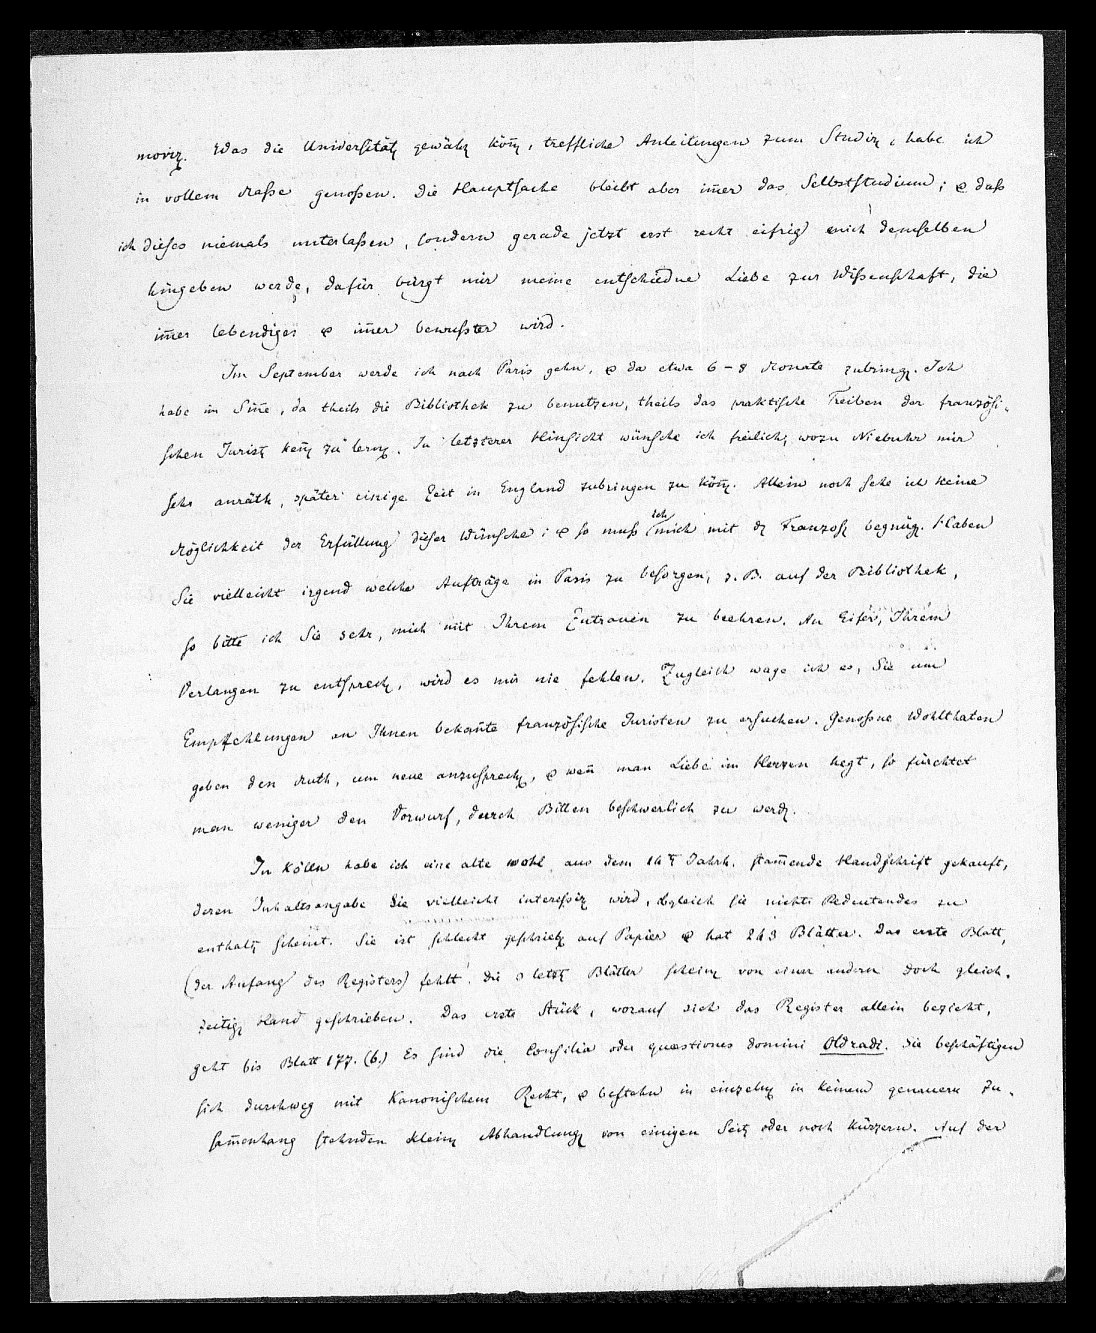 moviren. Was die Universität gewähren könn̄, treffliche Anleitungen zum Studiren, habe ich
in vollem Maße genoßen. Die Hauptsache bleibt aber im̄er das Selbststudium; & daß
ich dieses niemals unterlaßen, sondern gerade jetzt erst recht eifrig mich demselben
hingeben werde, dafür bürgt mir meine entschiedne Liebe zur Wißenschaft, die
im̄er lebendiger & im̄er bewußter wird.
Im September werde ich nach Paris gehn, & da etwa 6–8 Monate zubringen. Ich
habe im Sin̄e, da theils die Bibliothek zu benutzen, theils das praktische Treiben der französi-
schen Juristen ken̄en zu lernen. In letzterer Hinsicht wünsche ich freilich, wozu Niebuhr mir
sehr anräth, später einige Zeit in England zubringen zu kön̄en. Allein noch sehe ich keine
Möglichkeit der Erfüllung dieser Wünsche; & so muß ich mich mit den Franzosen begnügen. Haben
Sie vielleicht irgend welche Aufträge in Paris zu besorgen, z. B. auf der Bibliothek,
so bitte ich Sie sehr, mich mit Ihrem Zutrauen zu beehren. An Eifer, Ihrem
Verlangen zu entsprechen, wird es mir nie fehlen. Zugleich wage ich es, Sie um
Empfehlungen an Ihnen bekan̄te französische Juristen zu ersuchen. Genoßne Wohlthaten
geben den Muth, um neue anzusprechen, & wen̄ man Liebe im Herzen hegt, so fürchtet
man weniger den Vorwurf, durch Bitten beschwerlich zu werden.
In Kölln habe ich eine alte wohl aus dem 14t Jahrh. stam̄ende Handschrift gekauft,
deren Inhaltsangabe Sie vielleicht interessiren wird, obgleich sie nichts Bedeutendes zu
enthalten scheint. Sie ist schlecht geschrieben auf Papier & hat 243 Blätter. Das erste Blatt,
(der Anfang des Registers) fehlt. Die letzten Blätter scheinen von einer andern doch gleich-
zeitigen Hand geschrieben. Das erste Stück, worauf sich das Register allein bezieht,
geht bis Blatt 177. (b.) Es sind die Consilia oder quæstiones domini Oldradi. Sie beschäftigen
sich durchweg mit Kanonischem Recht, & bestehn in einzelnen in keinem genauern Zu-
sam̄enhang stehnden kleinen Abhandlungen von einigen Seiten oder noch kürzern. Auf der